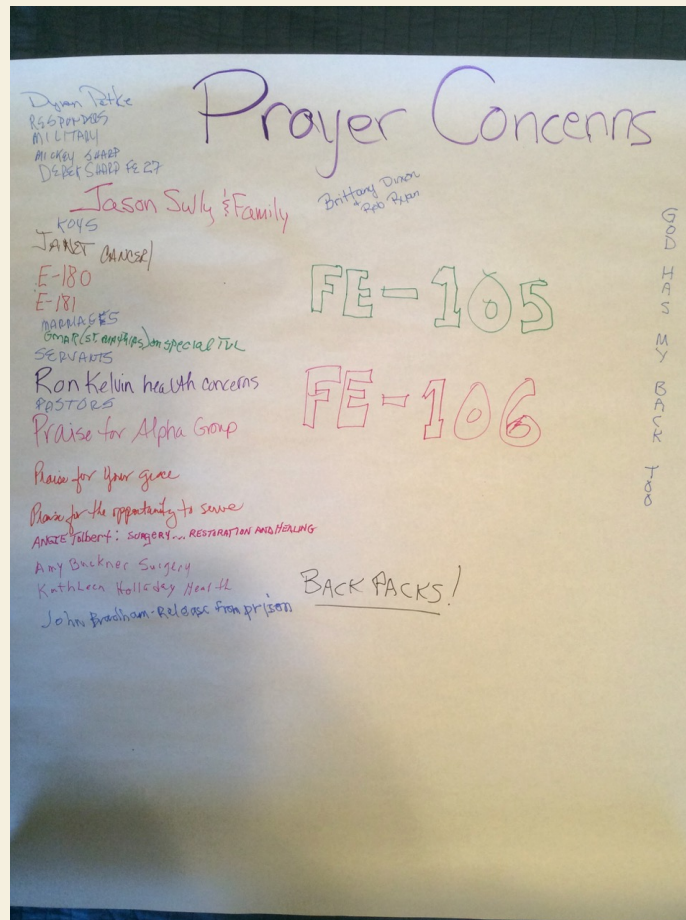 Prayer Concerns
RESPONDERS
MILITARY
MICKEY SHARP
DEREK SHARP FE 27
Jason Sully & Family
Brittany Dixon
+ Rob Ryan
JANET CANCER/
E-180
E-181
MARRIAGES
on special TVL
SERVANTS
Ron Kelvin health concerns
PASTORS
Praise for Alpha Group
Praise for Your grace
Praise for the opportunity to serve
ANGIE Tolbert: surgery... RESTORATION AND HEALING
Amy Buckner Surgery
Kathleen Holladay Health
John Bradham-Release from prison
FE-105
FE-106
BACK PACKS!
GOD HAS MY BACK TOO